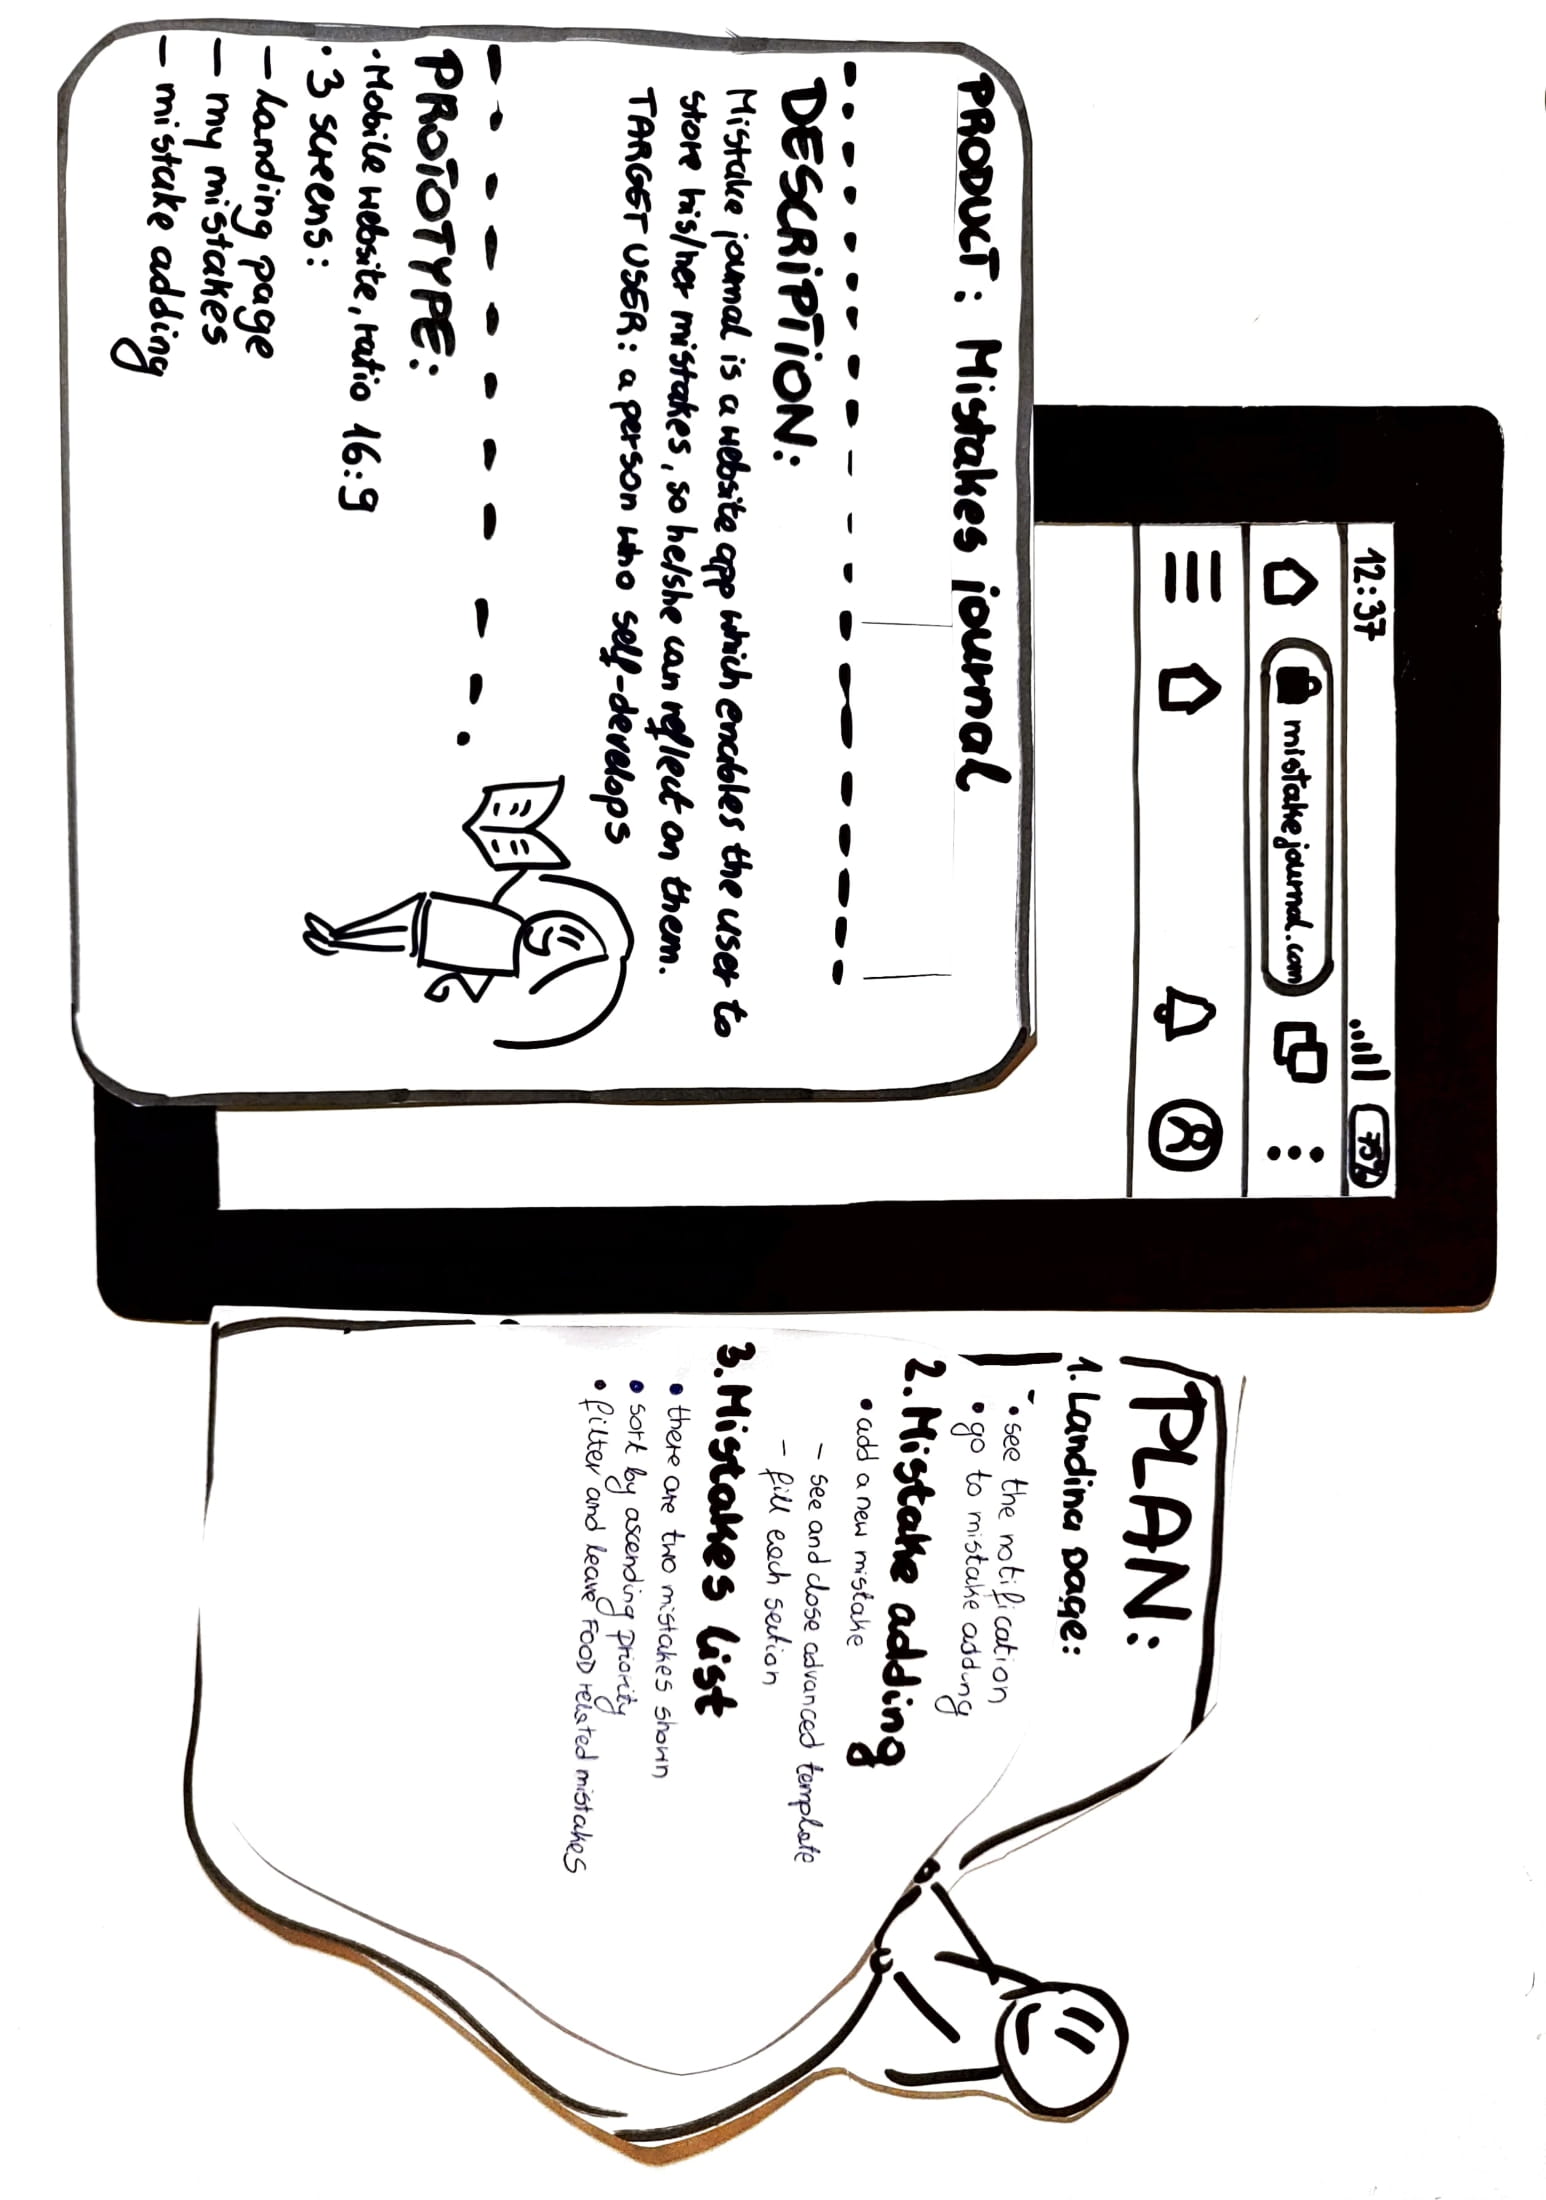 12:37 75%
mistakejournal.com
PRODUCT: Mistakes journal
DESCRIPTION:
Mistake journal is a website app which enables the user to
store his/her mistakes, so he/she can reflect on them.
TARGET USER: a person who self-develops
PROTOTYPE:
• Mobile website, ratio 16:9
• 3 screens:
— landing page
— my mistakes
— mistake adding
PLAN:
1. Landing page:
• see the notification
• go to mistake adding
2. Mistake adding
• add a new mistake
– see and close advanced template
– fill each section
3. Mistakes list
• there are two mistakes shown
• sort by ascending priority
• filter and leave FOOD related mistakes